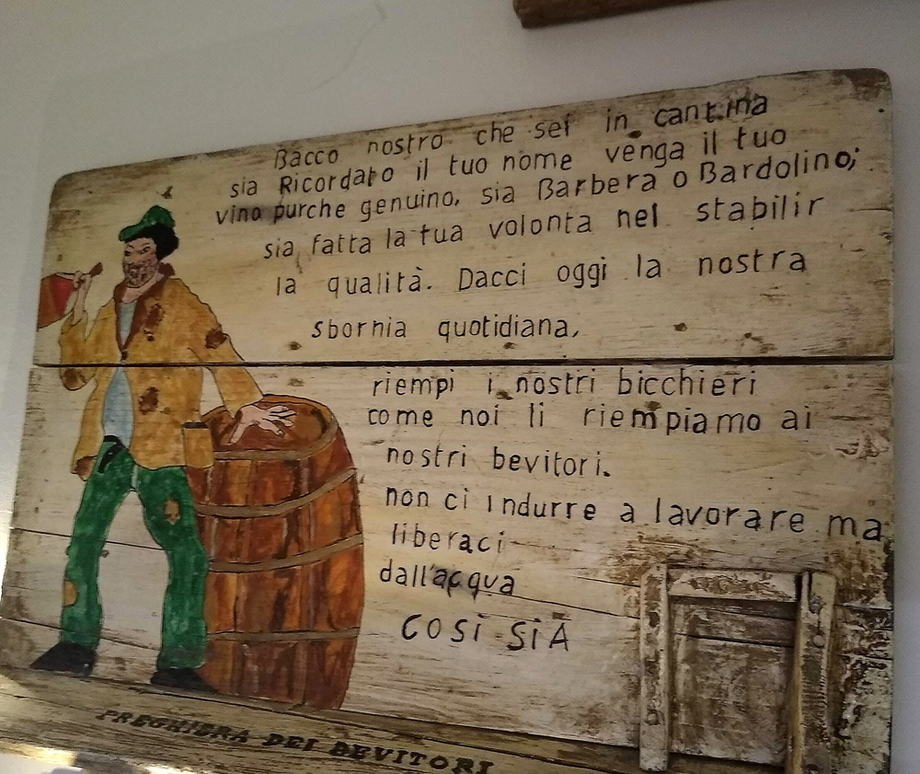 Bacco nostro che sei in cantina
sia Ricordato il tuo nome venga il tuo
vino purche genuino, sia Barbera o Bardolino;
sia fatta la tua volonta nel stabilir
la qualità. Dacci oggi la nostra
sbornia quotidiana,
riempi i nostri bicchieri
come noi li riempiamo ai
nostri bevitori.
non ci indurre a lavorare ma
liberaci
dall'acqua
COSI SIA
PREGHIERA DEI BEVITORI